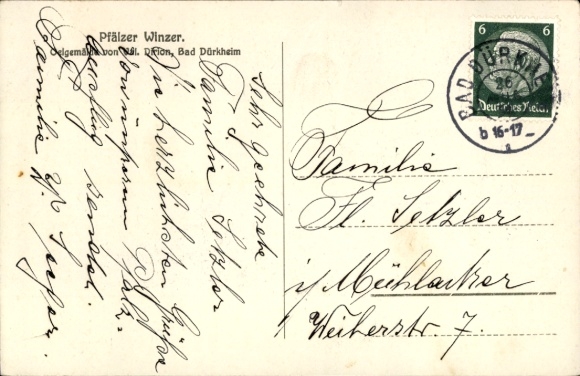 Pfälzer Winzer.
Oelgemälde von Wil. Dirion, Bad Dürkheim
Sehr geehrte
Familie Setzler
Die herzlichsten Grüße
von unserem Pfalz-
ausflug sendet
Familie
6 6
Deutsches Reich
BAD DÜRKHEIM
26
b 16-17
a
Familie
Fl. Setzler
i/ Mühlacker
Weiherstr. 7.